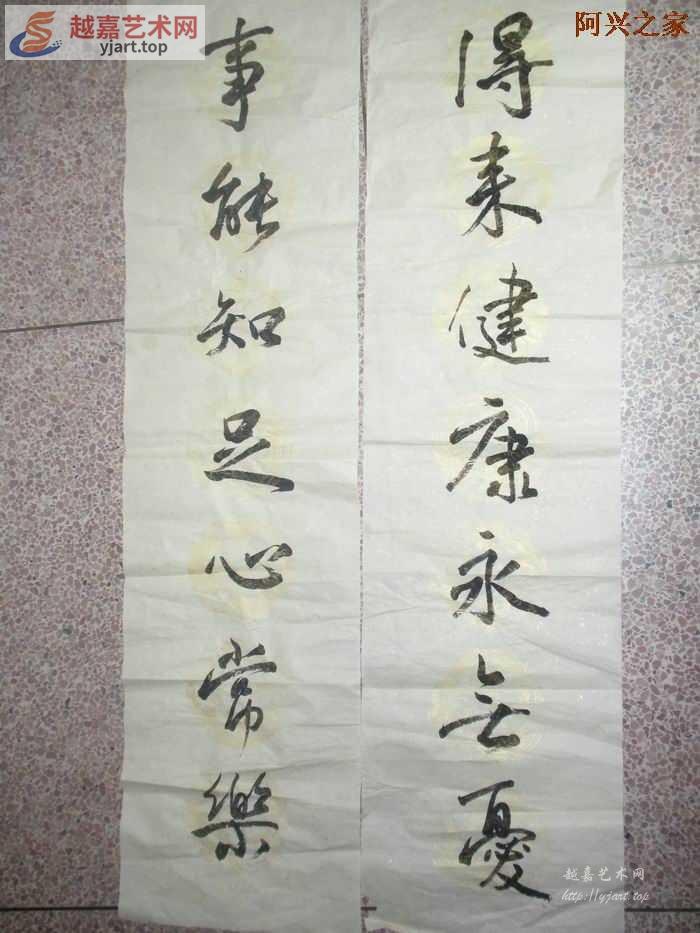 越嘉艺术网
yjart.top
阿兴之家
得来健康永无憂
事能知足心常樂
越嘉艺术网
http://yjart.top